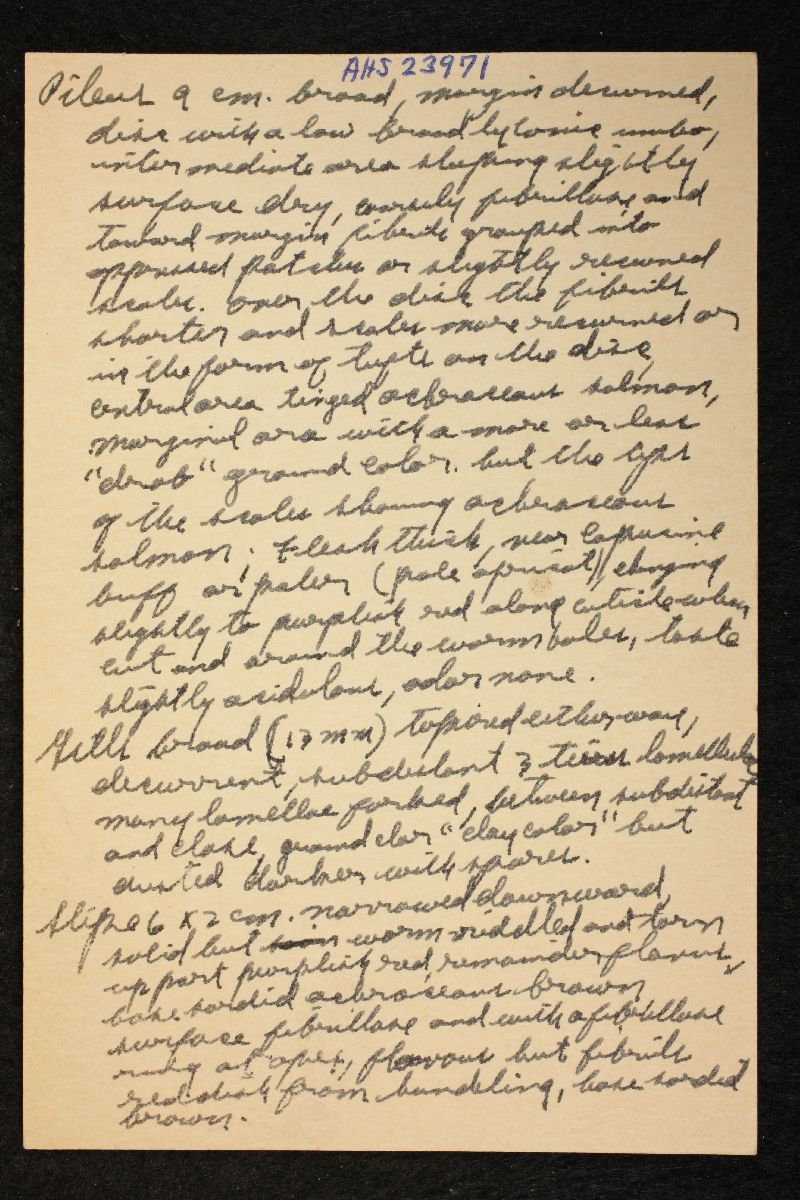 AHS 23971
Pileus 9 cm. broad, margin decurved,
disc with a low broadly conic umbo,
intermediate area sloping slightly
surface dry, coarsely fibrillose, and
toward margin fibrils grouped into
appressed patches or slightly recurved
scales. over the disc the fibrils
shorter and scales more recurved or
in the form of tufts on the disc,
central area tinged ochraceous salmon,
marginal area with a more or less
"drab" ground color. but the tips
of the scales showing ochraceous
salmon; flesh thick, near capucine
buff or paler (pale apricot), changing
slightly to purplish red along cuticle when
cut and around the worm holes, taste
slightly acidulous, odor none.
Gills broad (13 mm) tapered either way,
decurrent, subdistant 3 tiers lamellulae
many lamellae forked, between subdistant
and close, ground clor "clay color" but
dusted darker with spores.
Stipe 6 x 2 cm. narrowed downward,
solid but worm-riddled and torn
up part purplish red, remainder flavus,
base sordid ochraceous brown
surface fibrillose and with a fibrillose
ring at apex, flavous but fibrils
reddish from handling, base sordid
brown.